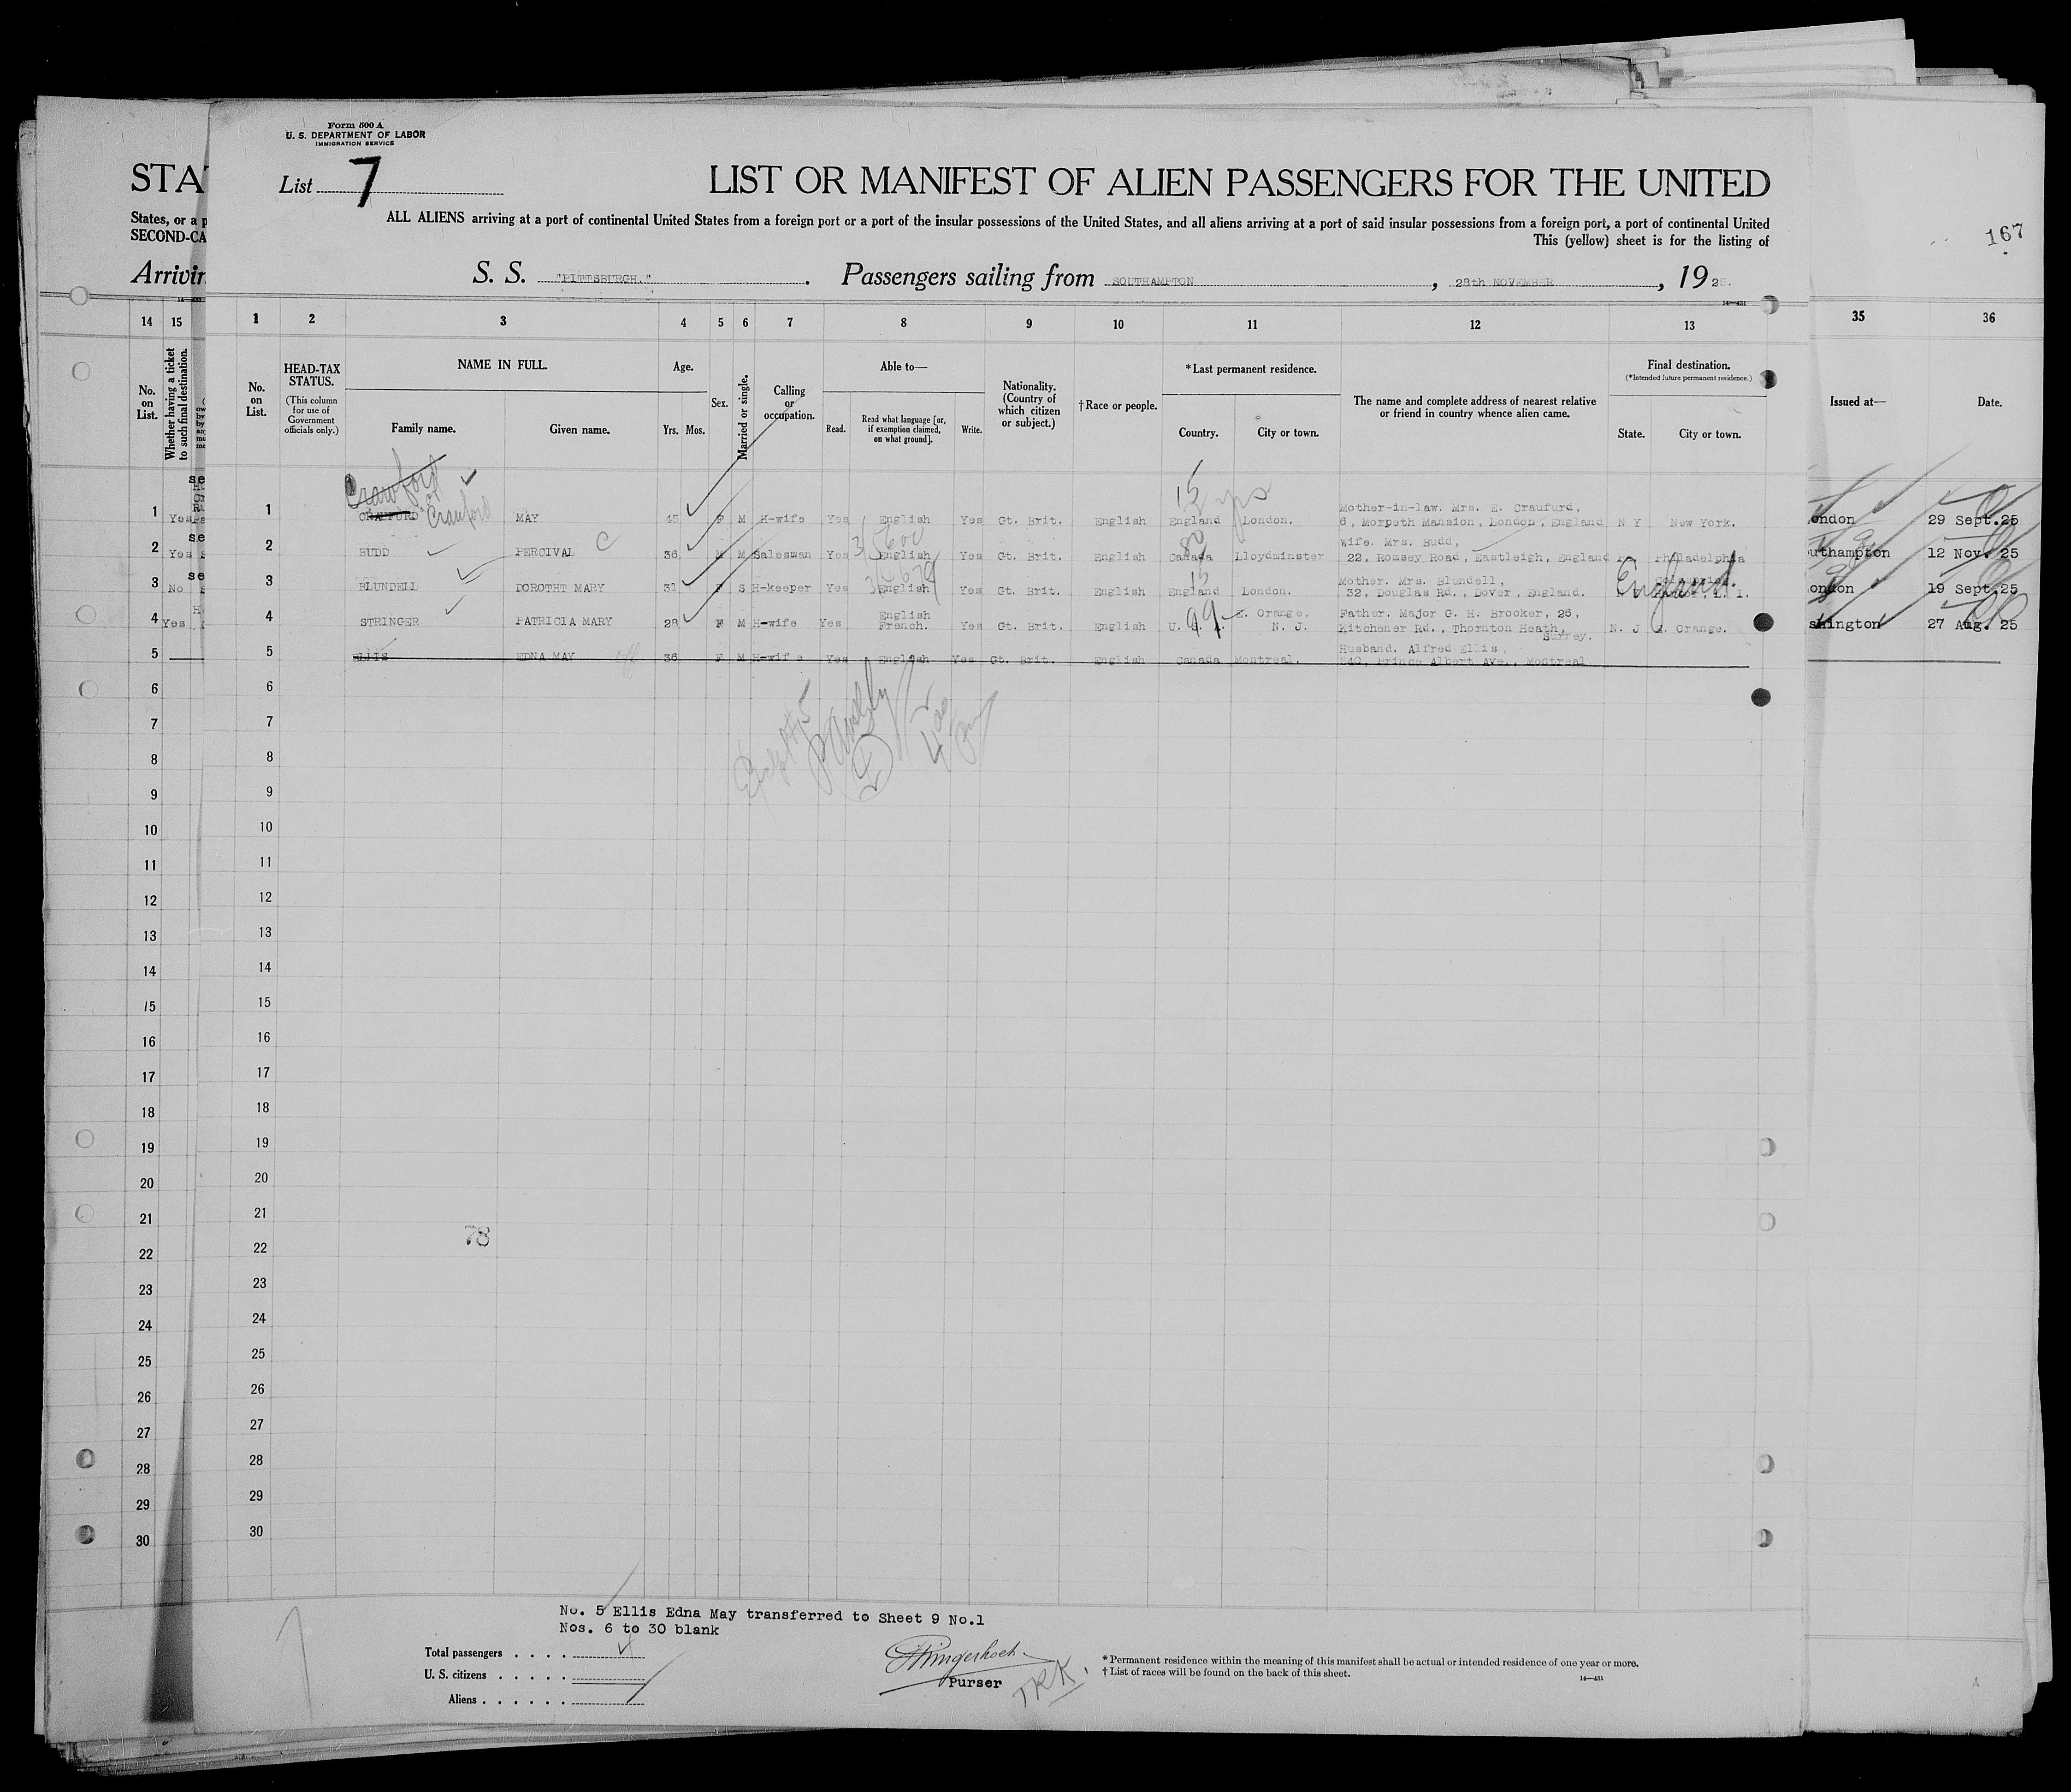 Form 500 A
U. S. DEPARTMENT OF LABOR
IMMIGRATION SERVICE
List 7
LIST OR MANIFEST OF ALIEN PASSENGERS FOR THE UNITED
ALL ALIENS arriving at a port of continental United States from a foreign port or a port of the insular possessions of the United States, and all aliens arriving at a port of said insular possessions from a foreign port, a port of continental United
This (yellow) sheet is for the listing of
S. S. "PITTSBURGH." . Passengers sailing from SOUTHAMPTON , 28th NOVEMBER , 1925.
STA
States, or a p
SECOND-CA
Arrivin
167
14 15 1 2 3 4 5 6 7 8 9 10 11 12 13 35 36
No. on List.
Whether having a ticket to such final destination.
No. on List.
HEAD-TAX STATUS.
(This column for use of Government officials only.)
NAME IN FULL.
Family name. Given name.
Age.
Yrs. Mos.
Sex.
Married or single.
Calling or occupation.
Able to—
Read. Read what language [or, if exemption claimed, on what ground]. Write.
Nationality. (Country of which citizen or subject.)
†Race or people.
*Last permanent residence.
Country. City or town.
The name and complete address of nearest relative or friend in country whence alien came.
Final destination.
(*Intended future permanent residence.)
State. City or town.
Issued at— Date.
Crawford
Craufurd
15 yrs
Mother-in-law. Mrs. E. Craufurd,
1 Yes 1 MAY 45 F M H-wife Yes English Yes Gt. Brit. English England London. 6, Morpeth Mansion, London, England N Y New York. ondon 29 Sept.25
Wife. Mrs. Budd,
2 Yes 2 BUDD PERCIVAL C 36 M M Salesman Yes English Yes Gt. Brit. English Canada Lloydminster 22, Romsey Road, Eastleigh, England Philadelphia uthampton 12 Nov. 25
Mother. Mrs. Blundell,
3 No 3 BLUNDELL DOROTHT MARY 31 F S H-keeper Yes English Yes Gt. Brit. English England London. 32, Douglas Rd., Dover, England. England ondon 19 Sept.25
English
4 Yes 4 STRINGER PATRICIA MARY 28 F M H-wife Yes French. Yes Gt. Brit. English U. S. 99 E. Orange, N. J. Father. Major G. H. Brooker, 26, Kitchener Rd., Thornton Heath, Surrey. N. J E. Orange. shington 27 Aug. 25
Husband. Alfred Ellis,
5 5 ELLIS EDNA MAY 36 F M H-wife Yes English Yes Gt. Brit. English Canada Montreal. 540, Prince Albert Ave., Montreal
6 6
7 7
8 8
9 9
10 10
11 11
12 12
13 13
14 14
15 15
16 16
17 17
18 18
19 19
20 20
21 21
78
22 22
23 23
24 24
25 25
26 26
27 27
28 28
29 29
30 30
No. 5 Ellis Edna May transferred to Sheet 9 No.1
Nos. 6 to 30 blank
Total passengers . . . . 4
U. S. citizens . . . . .
Aliens . . . . . .
Purser
TRK.
*Permanent residence within the meaning of this manifest shall be actual or intended residence of one year or more.
†List of races will be found on the back of this sheet.
14—431